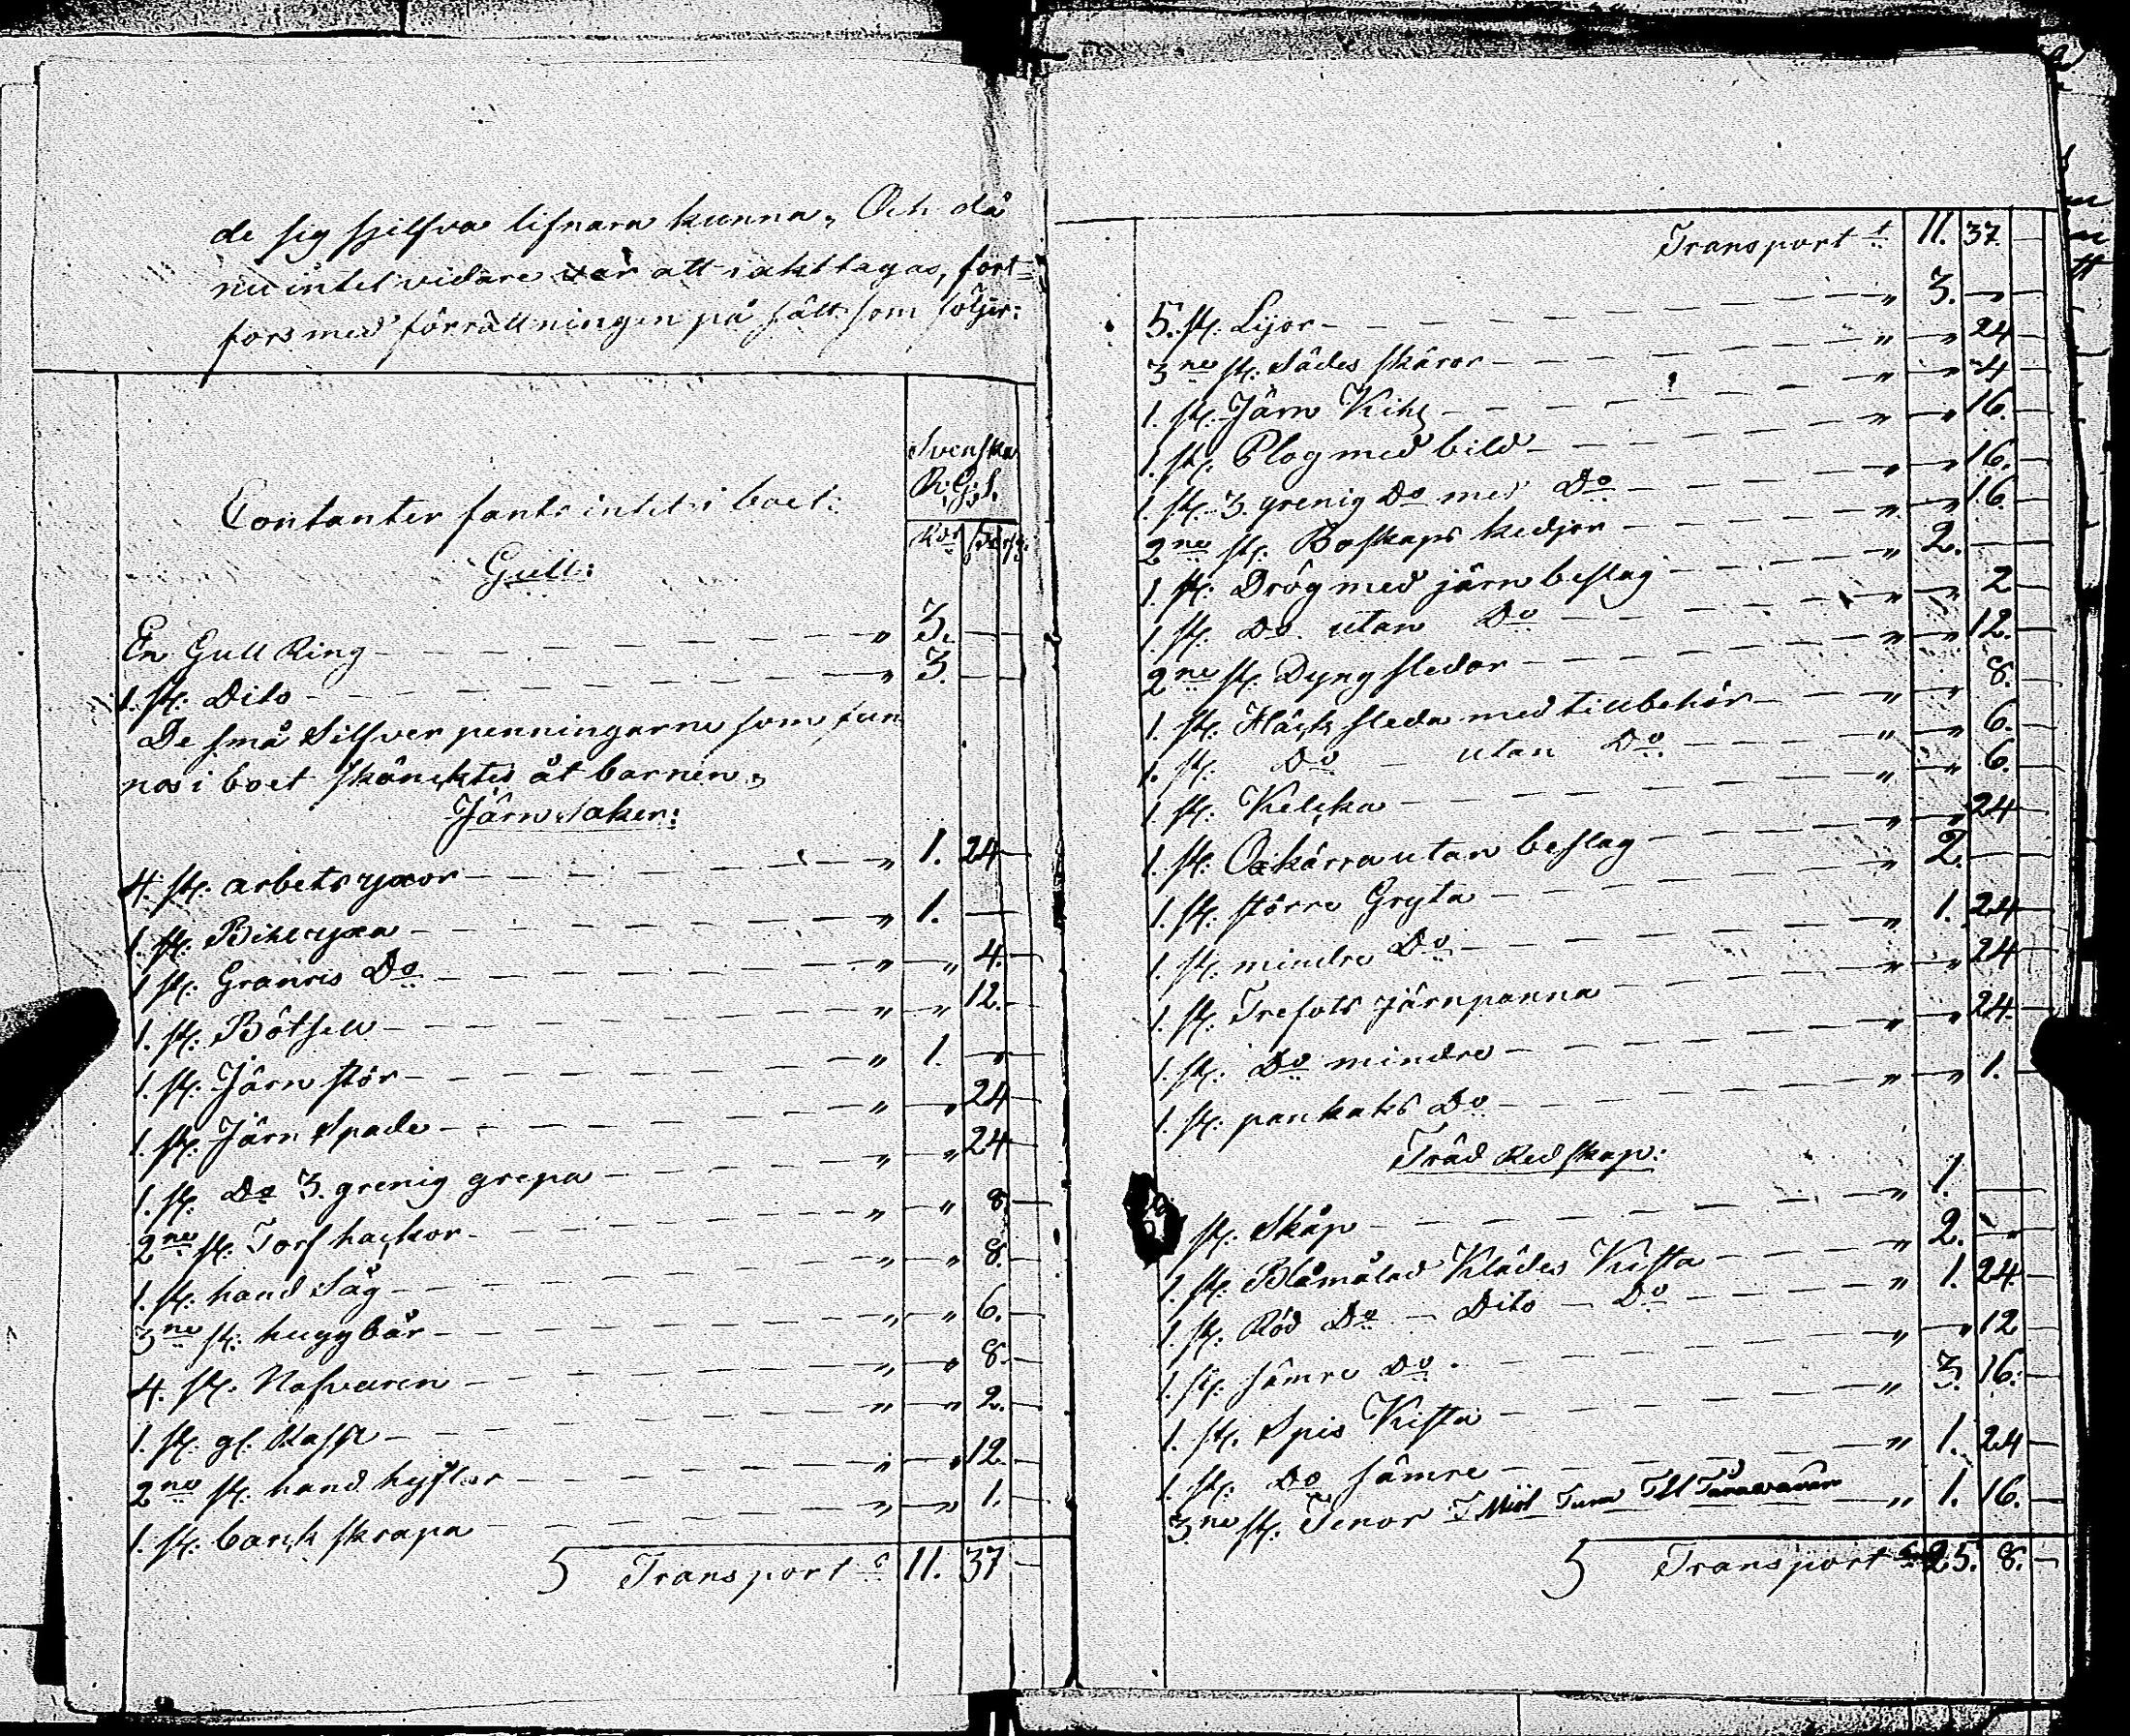 de sig sjelfva lifnära kunna. Och då
nu intet vidare var att iakttagas, fort-
fors med förrättningen på sätt som följer:
Svenska
R:G:s.
Contanter fants intet i boet:
Rdr
Gull:
En Gull Ring " 3. —
1. st. Dito " 3. —
De små Silfver penningarne som fun
nos i boet skäncktes åt barnen.
Järn saker:
4. st. arbets yxor " 1. 24
1. st. Bihl yxa " 1. —
1 st. Granris Do " " 4.
1. st. " " 12.
1. st. Järn stör " 1. "
1. st. Järn Spade " " 24
1. st. Do 3. grenig grepa " " 24
2ne st. Torf hackor " " 8
1. st. hand Såg " " 8.
3ne st. huggbår " " 6.
4. st. Nafvaren " " 8.
1. st. gl. " " 2.
2ne st. hand hyflar " " 12
1. st. barck skrapa " " 1.
5 Transport 11. 37
Transport 11. 37
5. st. Lijor " 3. "
3ne st. Sädes skäror " " 24
1. st. Järn Kihl " " 4
1. st. Plog med bild " " 16.
1. st. 3. grenig Do med Do " " 16.
2ne st. Boskaps kedjor " " 16.
1. st. Drög med järn beslag " 2. —
1. st. Do utan Do " " 2
2ne st. Dyng sledor " " 12.
1. st. Häck sleda med tillbehör " " 8.
1. st. Do utan Do " " 6.
1. st. Kelcka " " 6.
1. st. Oxkärra utan beslag " " 24
1. st. större Gryta " 2. —
1. st. mindre Do " 1. 24
1. st. Trefots järnpanna " " 24
1. st. Do mindre " " 24.
1. st. pankaks Do " " 1.
Träd Redskap:
st. Skåp " 1. —
1. st. Blåmålad Klädes Kista " 2. "
1. st. Röd Do Dito Do " 1. 24.
1. st. sämre Do " " 12
1. st. Spis Kista " 3. 16.
1. st. Do sämre " 1. 24
3ne st. Tinor " 1. 16.
5 Transport 25. 8.